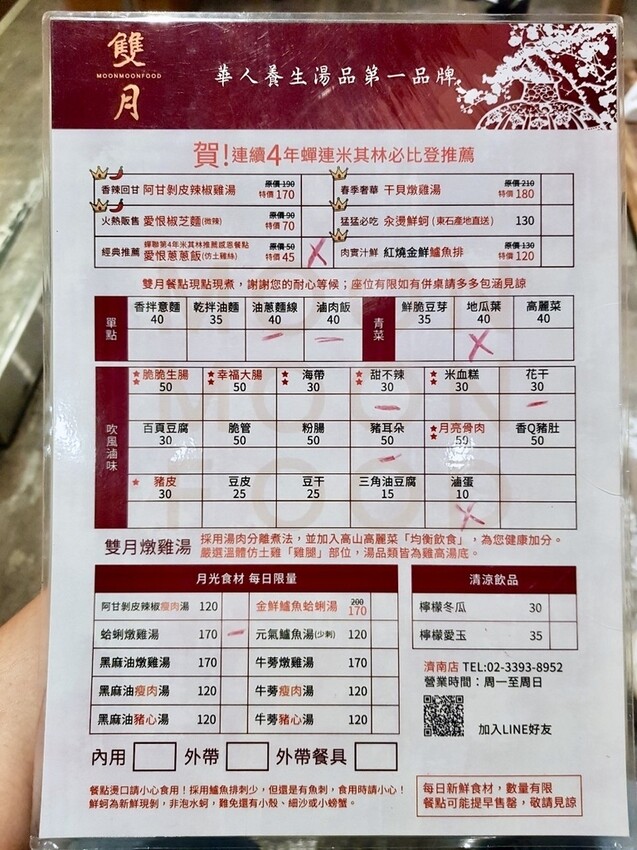 雙月
MOONMOONFOOD
華人養生湯品第一品牌
賀!連續4年蟬連米其林必比登推薦
香辣回甘 阿甘剝皮辣椒雞湯 原價190 特價170
春季奢華 干貝燉雞湯 原價210 特價180
火熱販售 愛恨椒芝麵(微辣) 原價90 特價70
猛猛必吃 汆燙鮮蚵(東石產地直送) 130
經典推薦 蟬聯第4年米其林推薦感恩餐點 愛恨蔥蔥飯(仿土雞絲) 原價50 特價45
肉實汁鮮 紅燒金鮮鱸魚排 原價130 特價120
雙月餐點現點現煮,謝謝您的耐心等候;座位有限如有併桌請多多包涵見諒
單點
香拌意麵 40
乾拌油麵 35
油蔥麵線 40
滷肉飯 40
青菜
鮮脆豆芽 35
地瓜葉 40
高麗菜 40
吹風滷味
脆脆生腸 50
幸福大腸 50
海帶 30
甜不辣 30
米血糕 30
花干 30
百頁豆腐 30
脆管 50
粉腸 50
豬耳朵 50
月亮骨肉 50
香Q豬肚 50
豬皮 30
豆皮 25
豆干 25
三角油豆腐 15
滷蛋 10
雙月燉雞湯
採用湯肉分離煮法,並加入高山高麗菜「均衡飲食」,為您健康加分。
嚴選溫體仿土雞「雞腿」部位,湯品類皆為雞高湯底。
月光食材 每日限量
阿甘剝皮辣椒瘦肉湯 120
金鮮鱸魚蛤蜊湯 200 170
蛤蜊燉雞湯 170
元氣鱸魚湯(少刺) 120
黑麻油燉雞湯 170
牛蒡燉雞湯 170
黑麻油瘦肉湯 120
牛蒡瘦肉湯 120
黑麻油豬心湯 120
牛蒡豬心湯 120
清涼飲品
檸檬冬瓜 30
檸檬愛玉 35
濟南店 TEL:02-3393-8952
營業時間:周一至周日
加入LINE好友
內用
外帶
外帶餐具
餐點燙口請小心食用!採用鱸魚排刺少,但還是有魚刺,食用時請小心!
鮮蚵為新鮮現剝,非泡水蚵,難免還有小殼、細沙或小螃蟹。
每日新鮮食材,數量有限
餐點可能提早售罄,敬請見諒